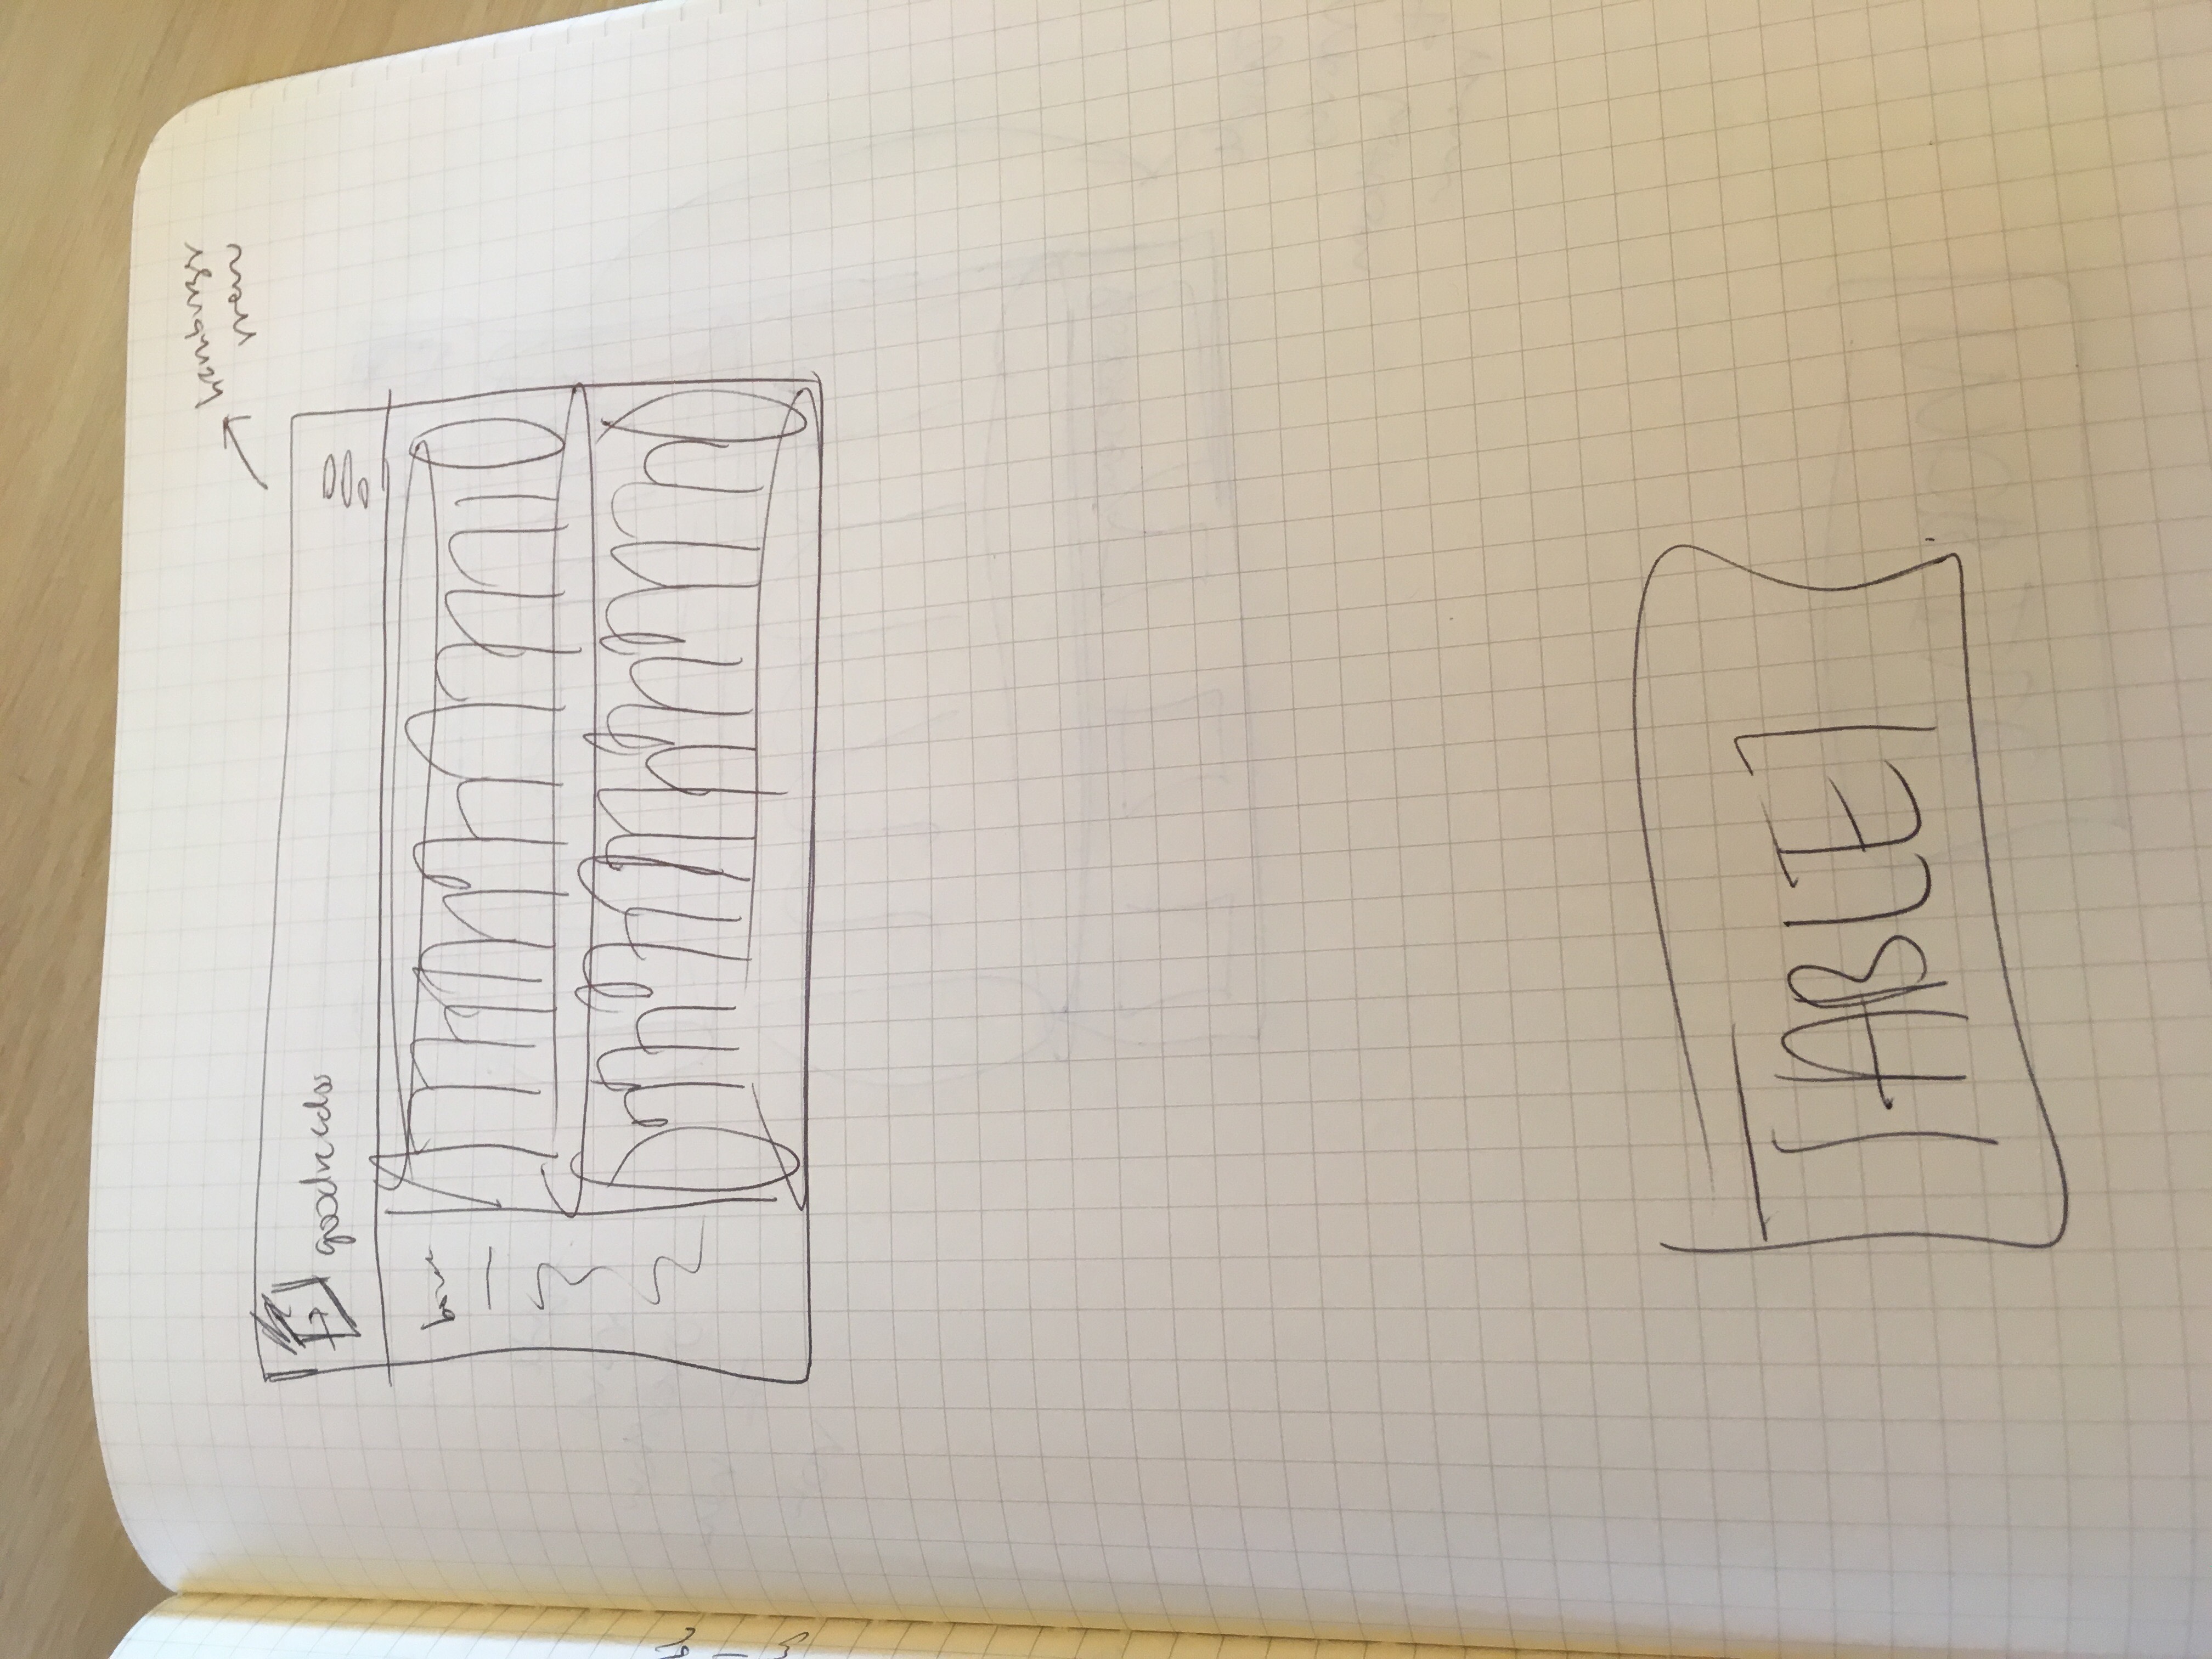 hamburger
menu
goodreads
home
TABLET